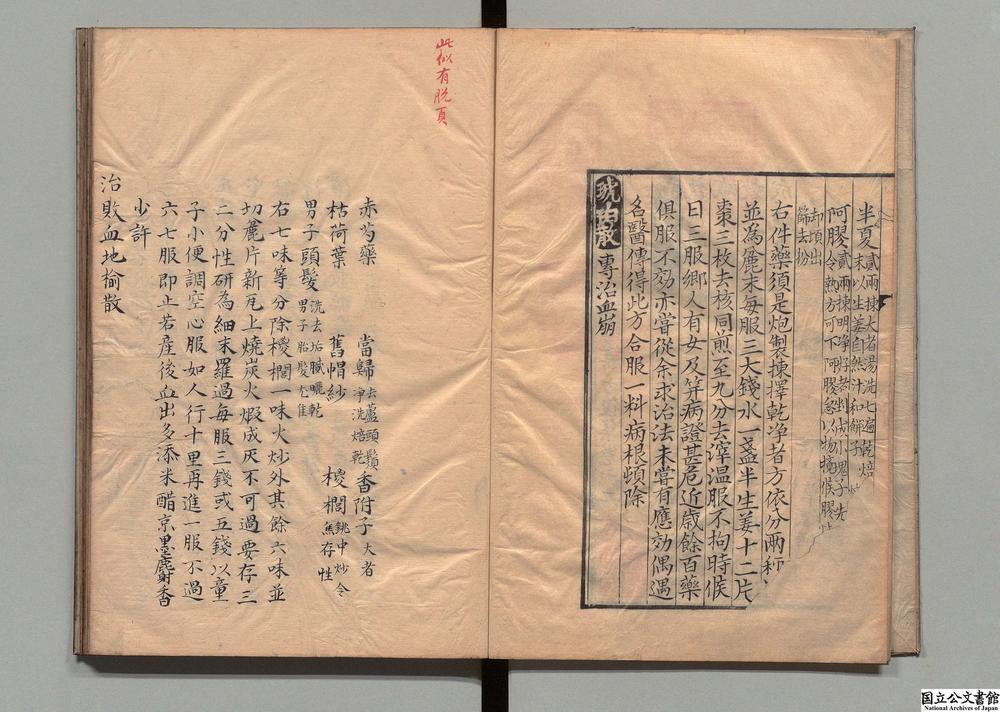 半夏貳兩揀大者湯洗七遍乾焙
末以生姜自然汁和餅子
阿膠貳兩揀明淨好者
令熟方可下阿膠急以物攪候膠
却頃出
篩去扮
右件藥須是炮製揀擇乾净者方依分兩秤
並為麄末每服三大錢水一盞半生姜十二片
棗三枚去核同煎至九分去滓溫服不拘時候
日三服鄉人有女及笄病證甚危近歲餘百藥
俱服不効亦嘗從余求治法未嘗有應効偶遇
名醫傳得此方合服一料病根頻除
專治血崩
此似有脫頁
赤芍藥 當歸去蘆頭鬚净洗焙乾 香附子大者
枯荷葉 舊帽紗 椶櫚銚中炒令焦存性
男子頭髮洗去垢膩曬乾男子胎髮尤佳
右七味等分除椶櫚一味火炒外其餘六味並
切麄片新瓦上燒炭火煅成灰不可過要存三
二分性研為細末羅過每服三錢或五錢以童
子小便調空心服如人行十里再進一服不過
六七服即止若產後血出多添米醋京墨麝香
少許
治敗血地榆散
国立公文書館
National Archives of Japan